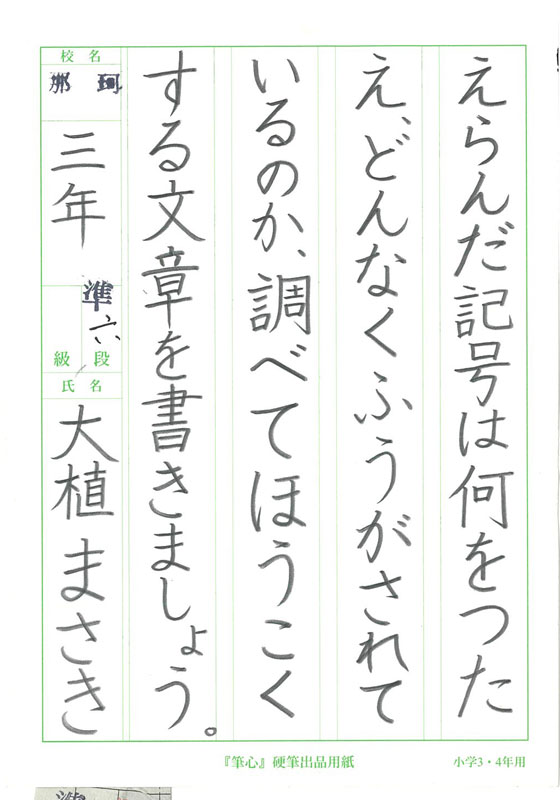 えらんだ記号は何をつた
え、どんなくふうがされて
いるのか、調べてほうこく
する文章を書きましょう。
校名
那珂
三年
準六
段級
氏名
大植まさき
『筆心』硬筆出品用紙
小学3・4年用